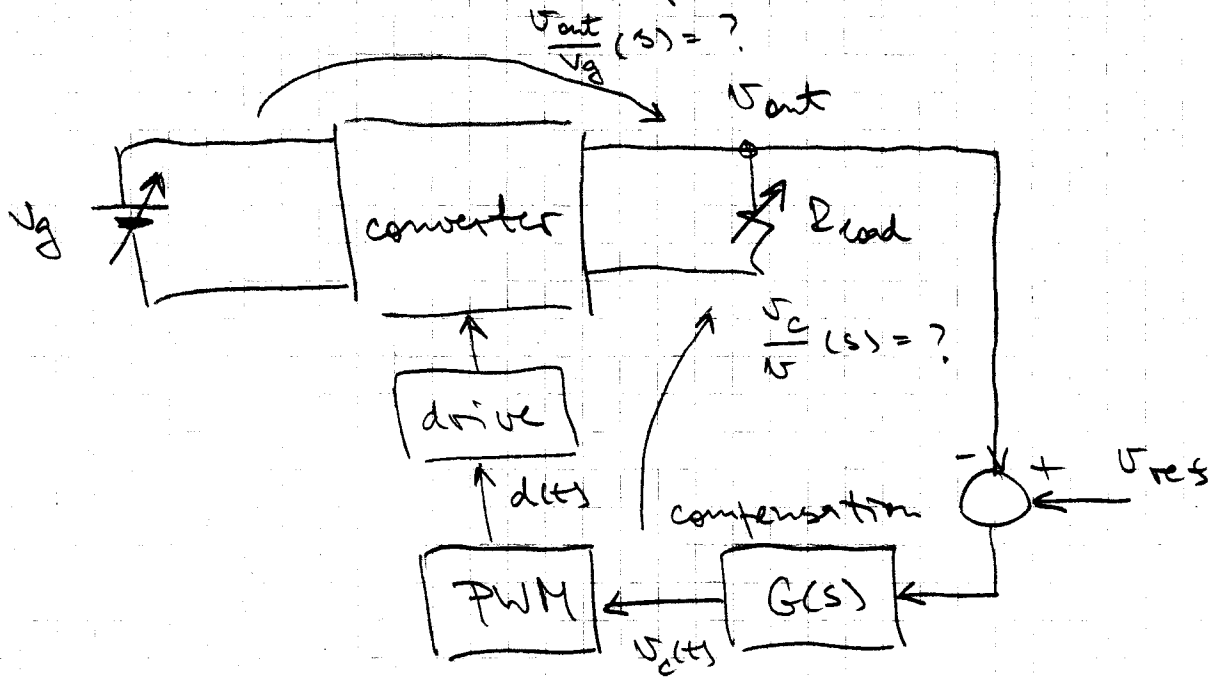 v_out/v_g (s) = ?
v_out
v_g
converter
R_load
v_c/v (s) = ?
drive
d(t)
- + v_ref
compensation
PWM
G(s)
v_c(t)